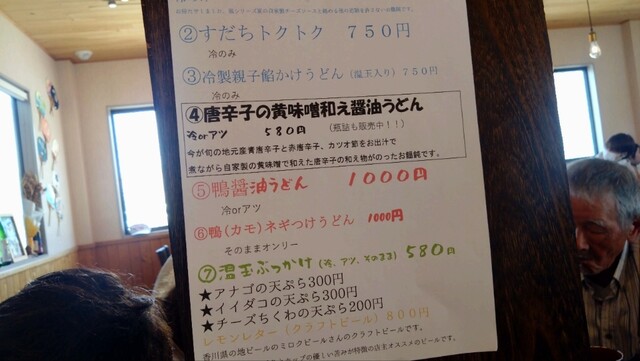 ②すだちトクトク　７５０円
冷のみ
③冷製親子餡かけうどん（温玉入り）７５０円
冷のみ
④唐辛子の黄味噌和え醤油うどん
冷orアツ　５８０円　（瓶詰も販売中！！）
今が旬の地元産青唐辛子と赤唐辛子、カツオ節をお出汁で
煮ながら自家製の黄味噌で和えた唐辛子の和え物がのったお饂飩です。
⑤鴨醤油うどん　１０００円
冷orアツ
⑥鴨（カモ）ネギつけうどん　1000円
そのままオンリー
⑦温玉ぶっかけ（冷、アツ、そのまま）５８０円
★アナゴの天ぷら300円
★イイダコの天ぷら300円
★チーズちくわの天ぷら200円
レモンレター（クラフトビール）８００円
香川県の地ビールのミロクビールさんのクラフトビールです。
の優しい苦みが特徴の店主オススメのビールです。